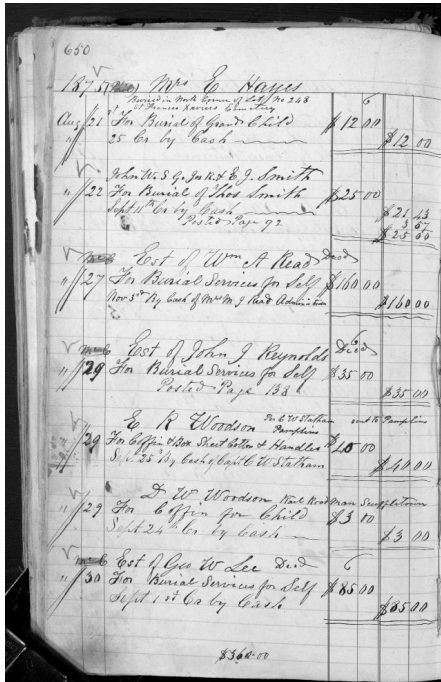 650
1875 Mrs E Hayes
Buried in North Corner of Lot No 243
St Francis Xaviers Cemetery 6
Aug 21st For Burial of Grand Child $12 00
" 25 Cr by Cash $12 00
John W. S. G. Jos R. & E J. Smith
" 22 For Burial of Thos Smith $25 00
Sept 11th Cr by Cash $21 43
Posted Page 92 3 57
$25 00
Est of Wm A Read Decd
" 27 For Burial Services for Self $160 00
Nov 3rd By Cash of Mrs M J Read $160 00
Est of John J Reynolds Decd 6
" 29 For Burial Services for Self $35 00
Posted Page 138 $35 00
E R Woodson Per C W Statham sent to Pamplins
Pamplins
" 29 For Coffin & Box Sheet Cotton & Handles $40 00
Sept 25th By Cash of Capt C W Statham $40 00
D W Woodson Rail Road Man Scuffletown
" 29 For Coffin for Child $3 00
Sept 24th Cr by Cash $3 00
Est of Geo W Lee Decd 6
" 30 For Burial Services for Self $85 00
Sept 1st Cr by Cash $85 00
$360.00